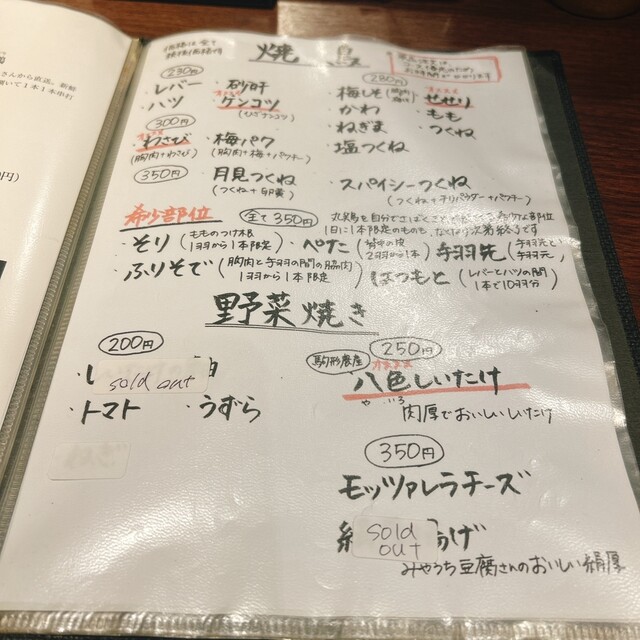 さんから直送。新鮮
焼鳥
230円
・レバー ・砂肝
・ハツ ・ゲンコツ
(ひざナンコツ)
280円
・梅しそ ・せせり
・かわ ・もも
・ねぎま ・つくね
・塩つくね
300円
オススメ
・わさび ・梅パク
(胸肉+わさび) (胸肉+梅+パクチー)
350円
・月見つくね ・スパイシーつくね
(つくね+卵黄) (つくね+チリパウダー+パクチー)
希少部位 全て350円
丸鳥を自分でさばくことで
希少な部位
1日に1本限定のものも、なくなり次第終了です
・そり (もものつけ根 1羽から1本限定) ・ぺた 2羽から1本) ・手羽先
・ふりそで (胸肉と手羽の間の脇肉 1羽から1本限定) ・はつもと (レバーとハツの間 1本で10羽分)
野菜焼き
200円
sold out
・トマト ・うずら
250円
駒形農産 オススメ
八色しいたけ
やいろ
肉厚でおいしいしいたけ
350円
モッツァレラチーズ
sold out
みやうち豆腐さんのおいしい絹厚